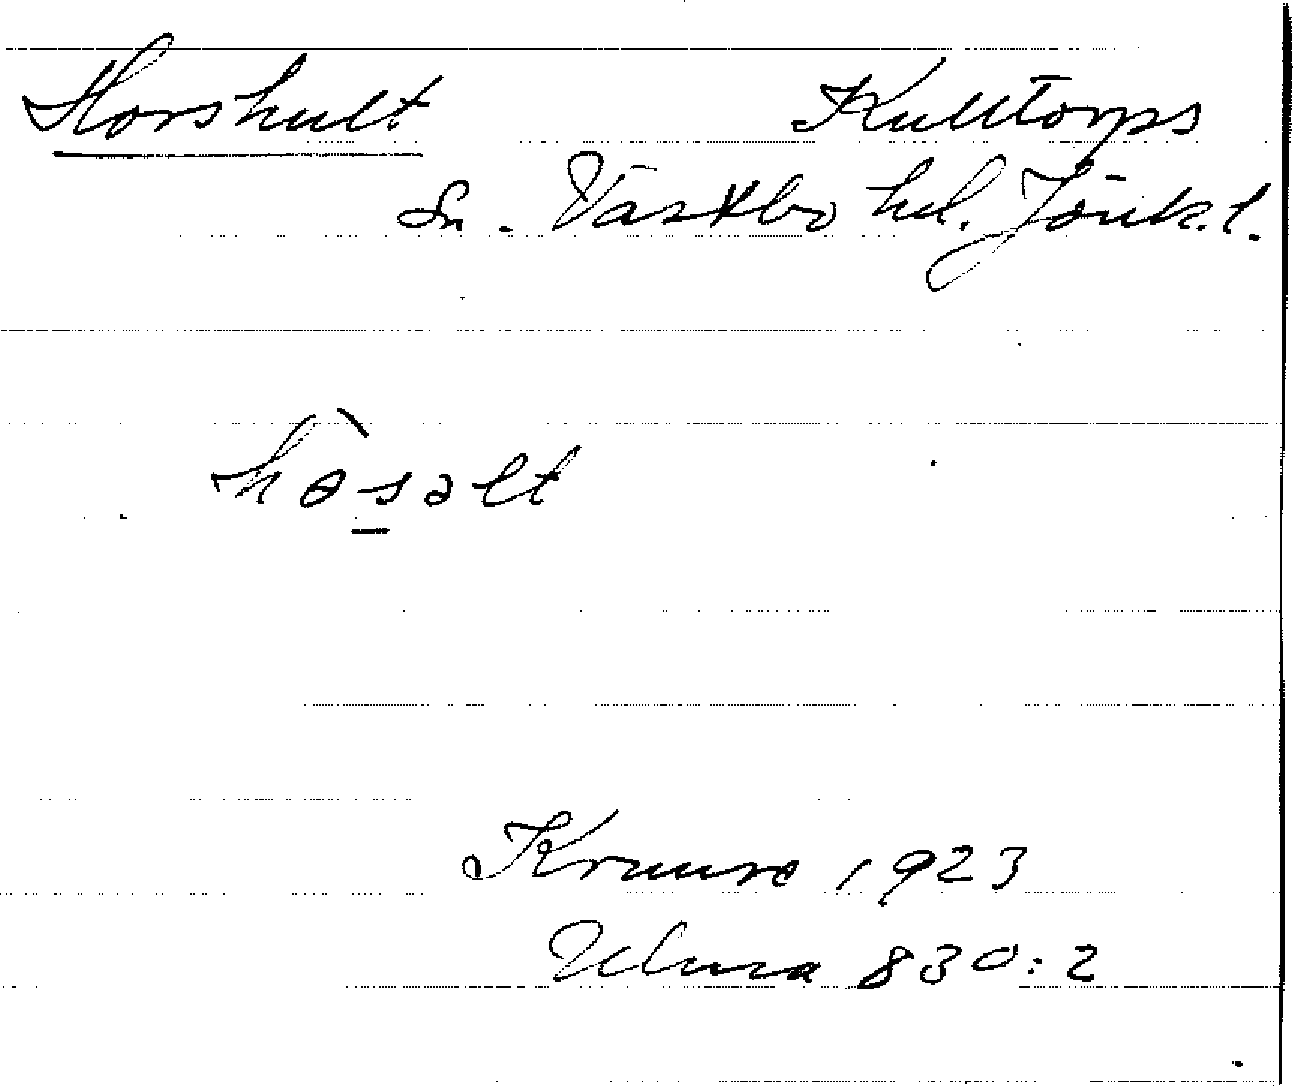 Horshult Kulltorps
sn. Västbo hd. Jönk.l.
hòsəlt
Krause 1923
Ulma 830:2